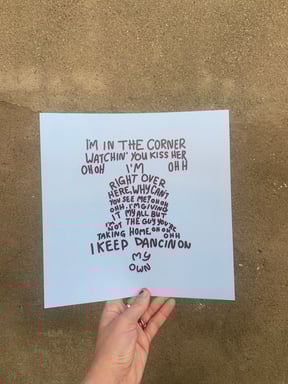 I'M IN THE CORNER
WATCHIN' YOU KISS HER
OHOH I'M OHH
RIGHT OVER
HERE, WHY CAN'T
YOU SEE ME? OHOH
OHH. I'M GIVING
IT MY ALL BUT
I'M NOT THE GUY YOU'RE
TAKING HOME, OHOH
OHH
I KEEP DANCIN ON
MY
OWN